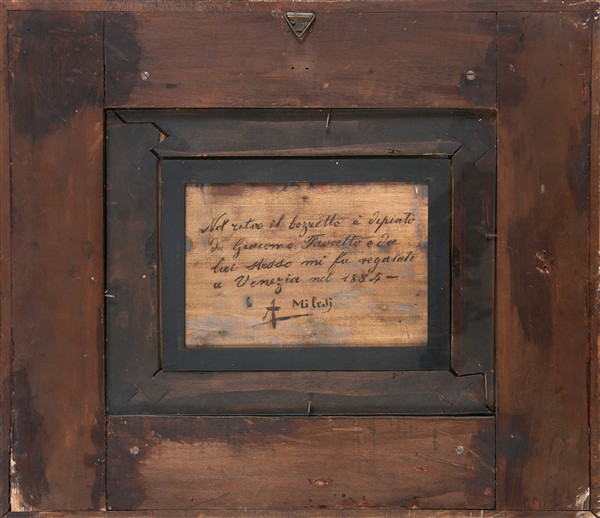 Nel retro il bozzetto è dipinto
da Giacomo Favretto e da
lui stesso mi fu regalato
a Venezia nel 1884 —